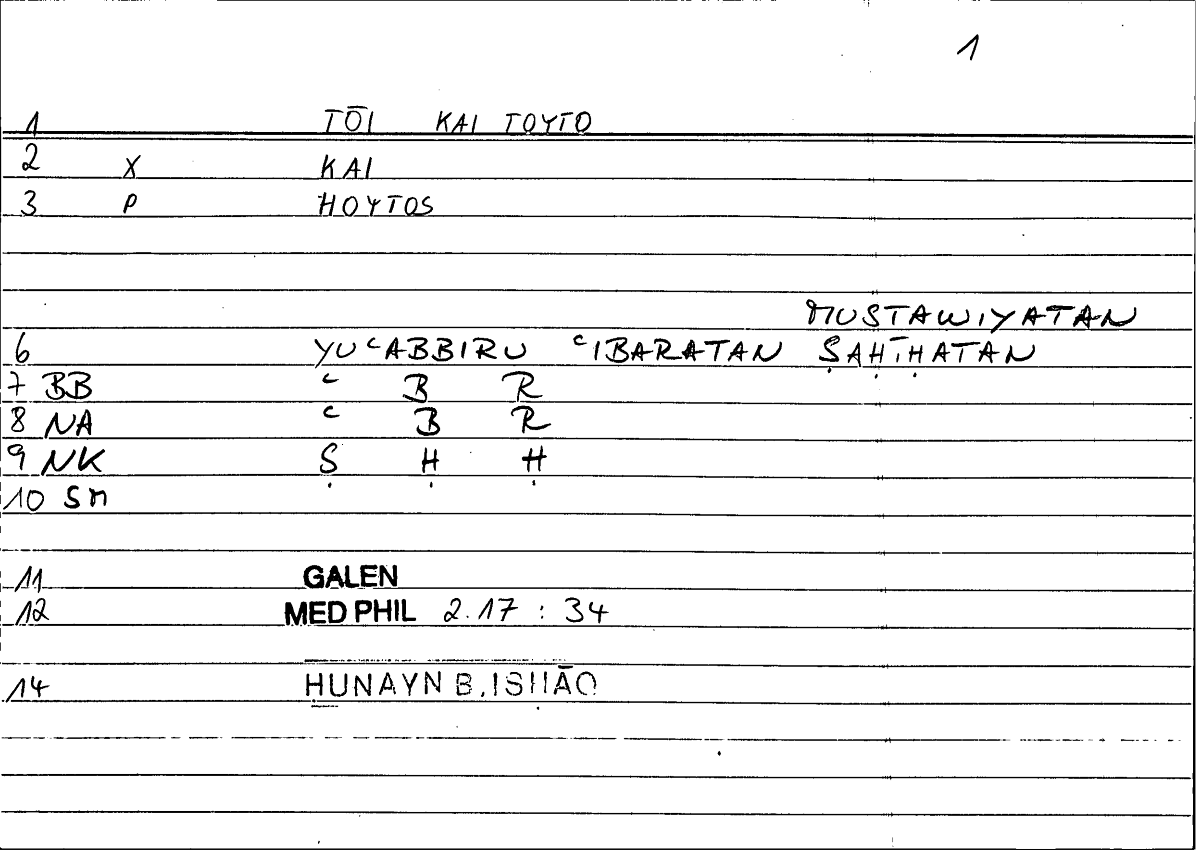 1
1 TŌI KAI TOYTO
2 X KAI
3 P HOYTOS
MUSTAWIYATAN
6 YUʿABBIRU ʿIBARATAN ṢAḤĪḤATAN
7 BB ʿ B R
8 NA ʿ B R
9 NK Ṣ Ḥ Ḥ
10 SM
11 GALEN
12 MED PHIL 2.17 : 34
14 ḤUNAYN B.ISḤĀQ